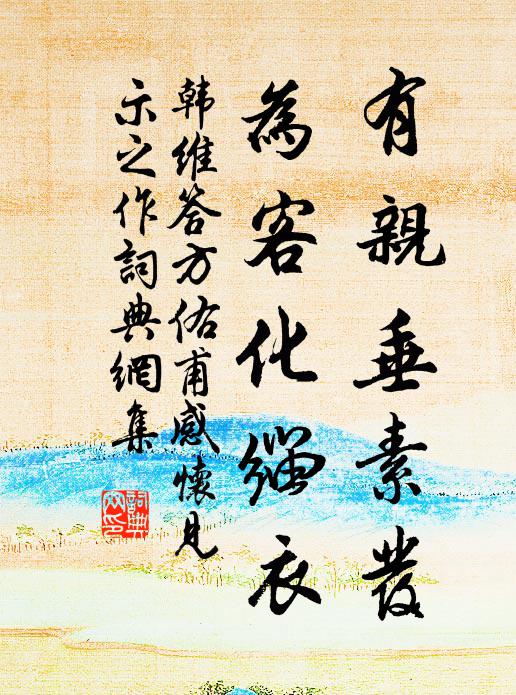 有親垂素髮
為客化緇衣
韩維答方佑甫感懷見
示之作詞典網集